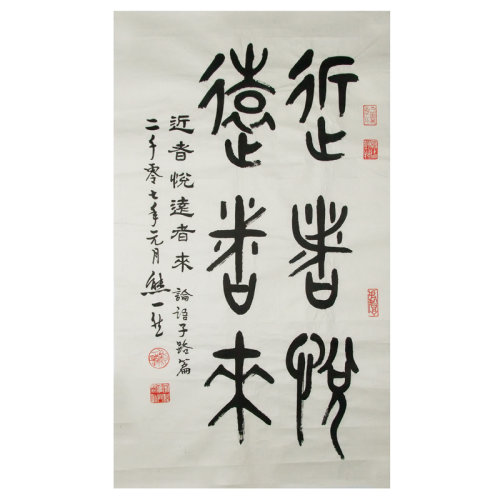 近者悅
遠者來
近者悅遠者來 論語子路篇
二千零七年元月熊一